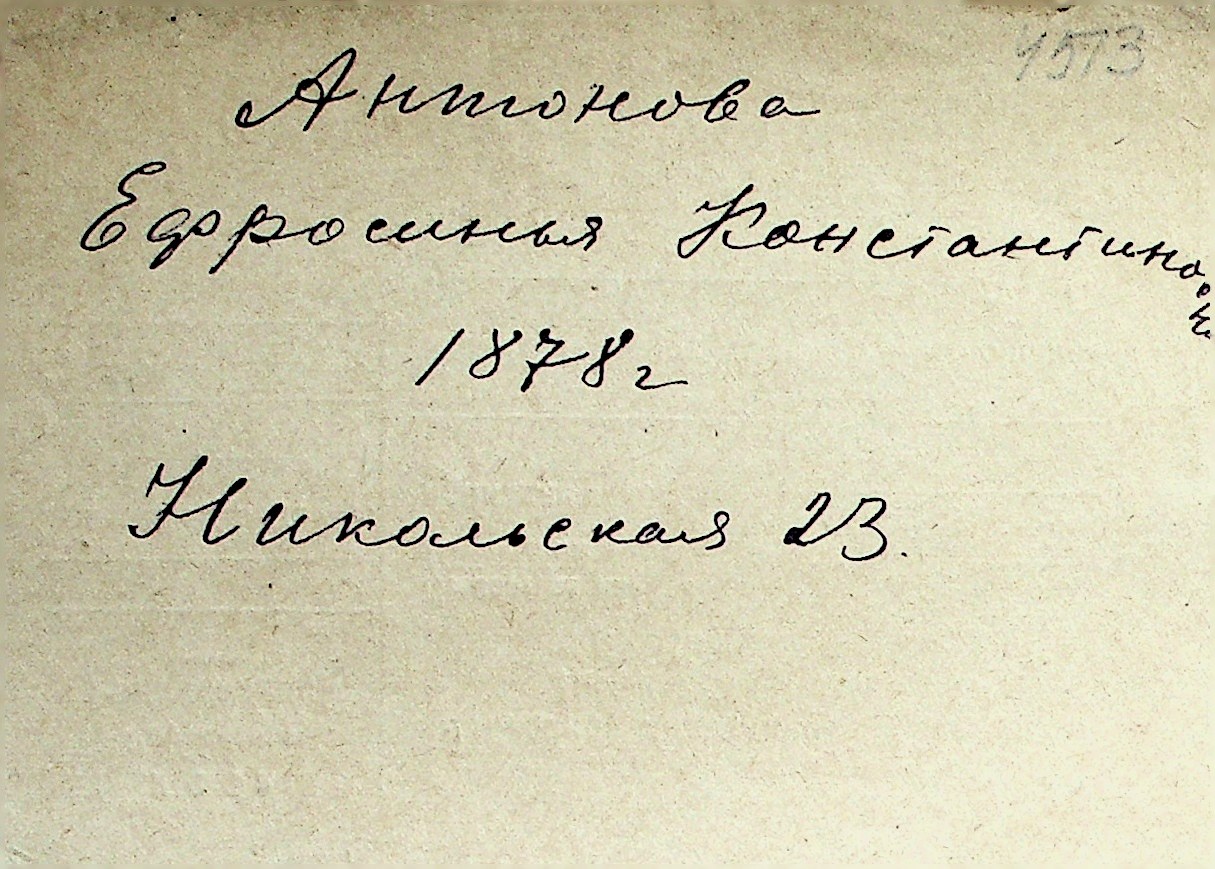 Антонова
Ефросинья Константинов
1878г
Никольская 23.